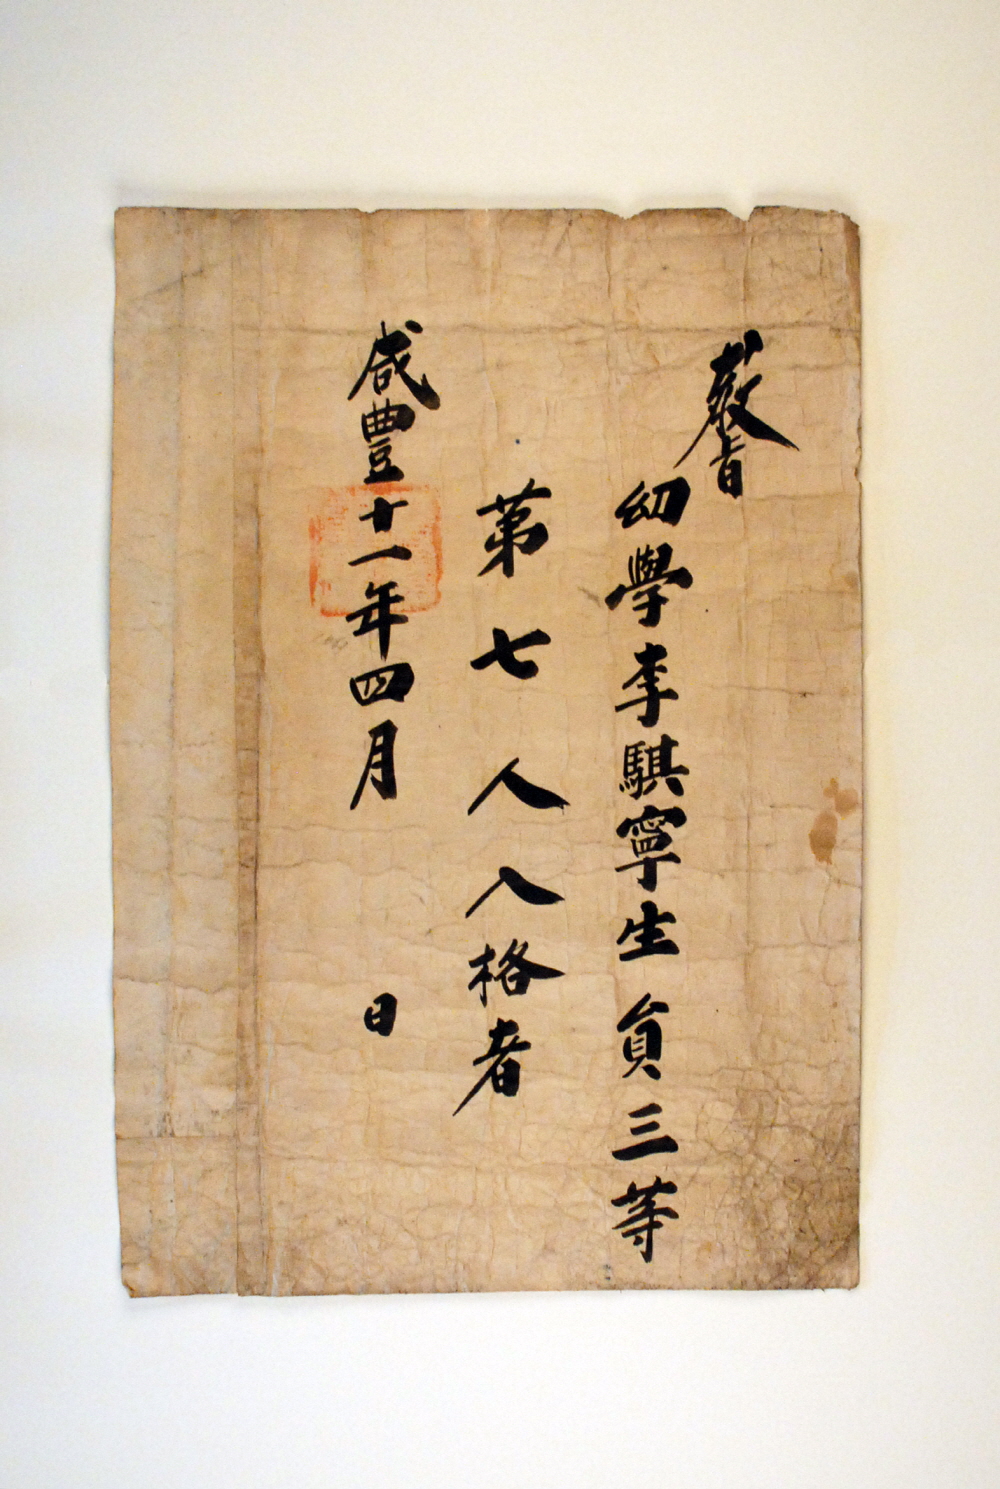 敎旨
幼學李騏寧生員三等
第七人入格者
咸豐十一年四月 日